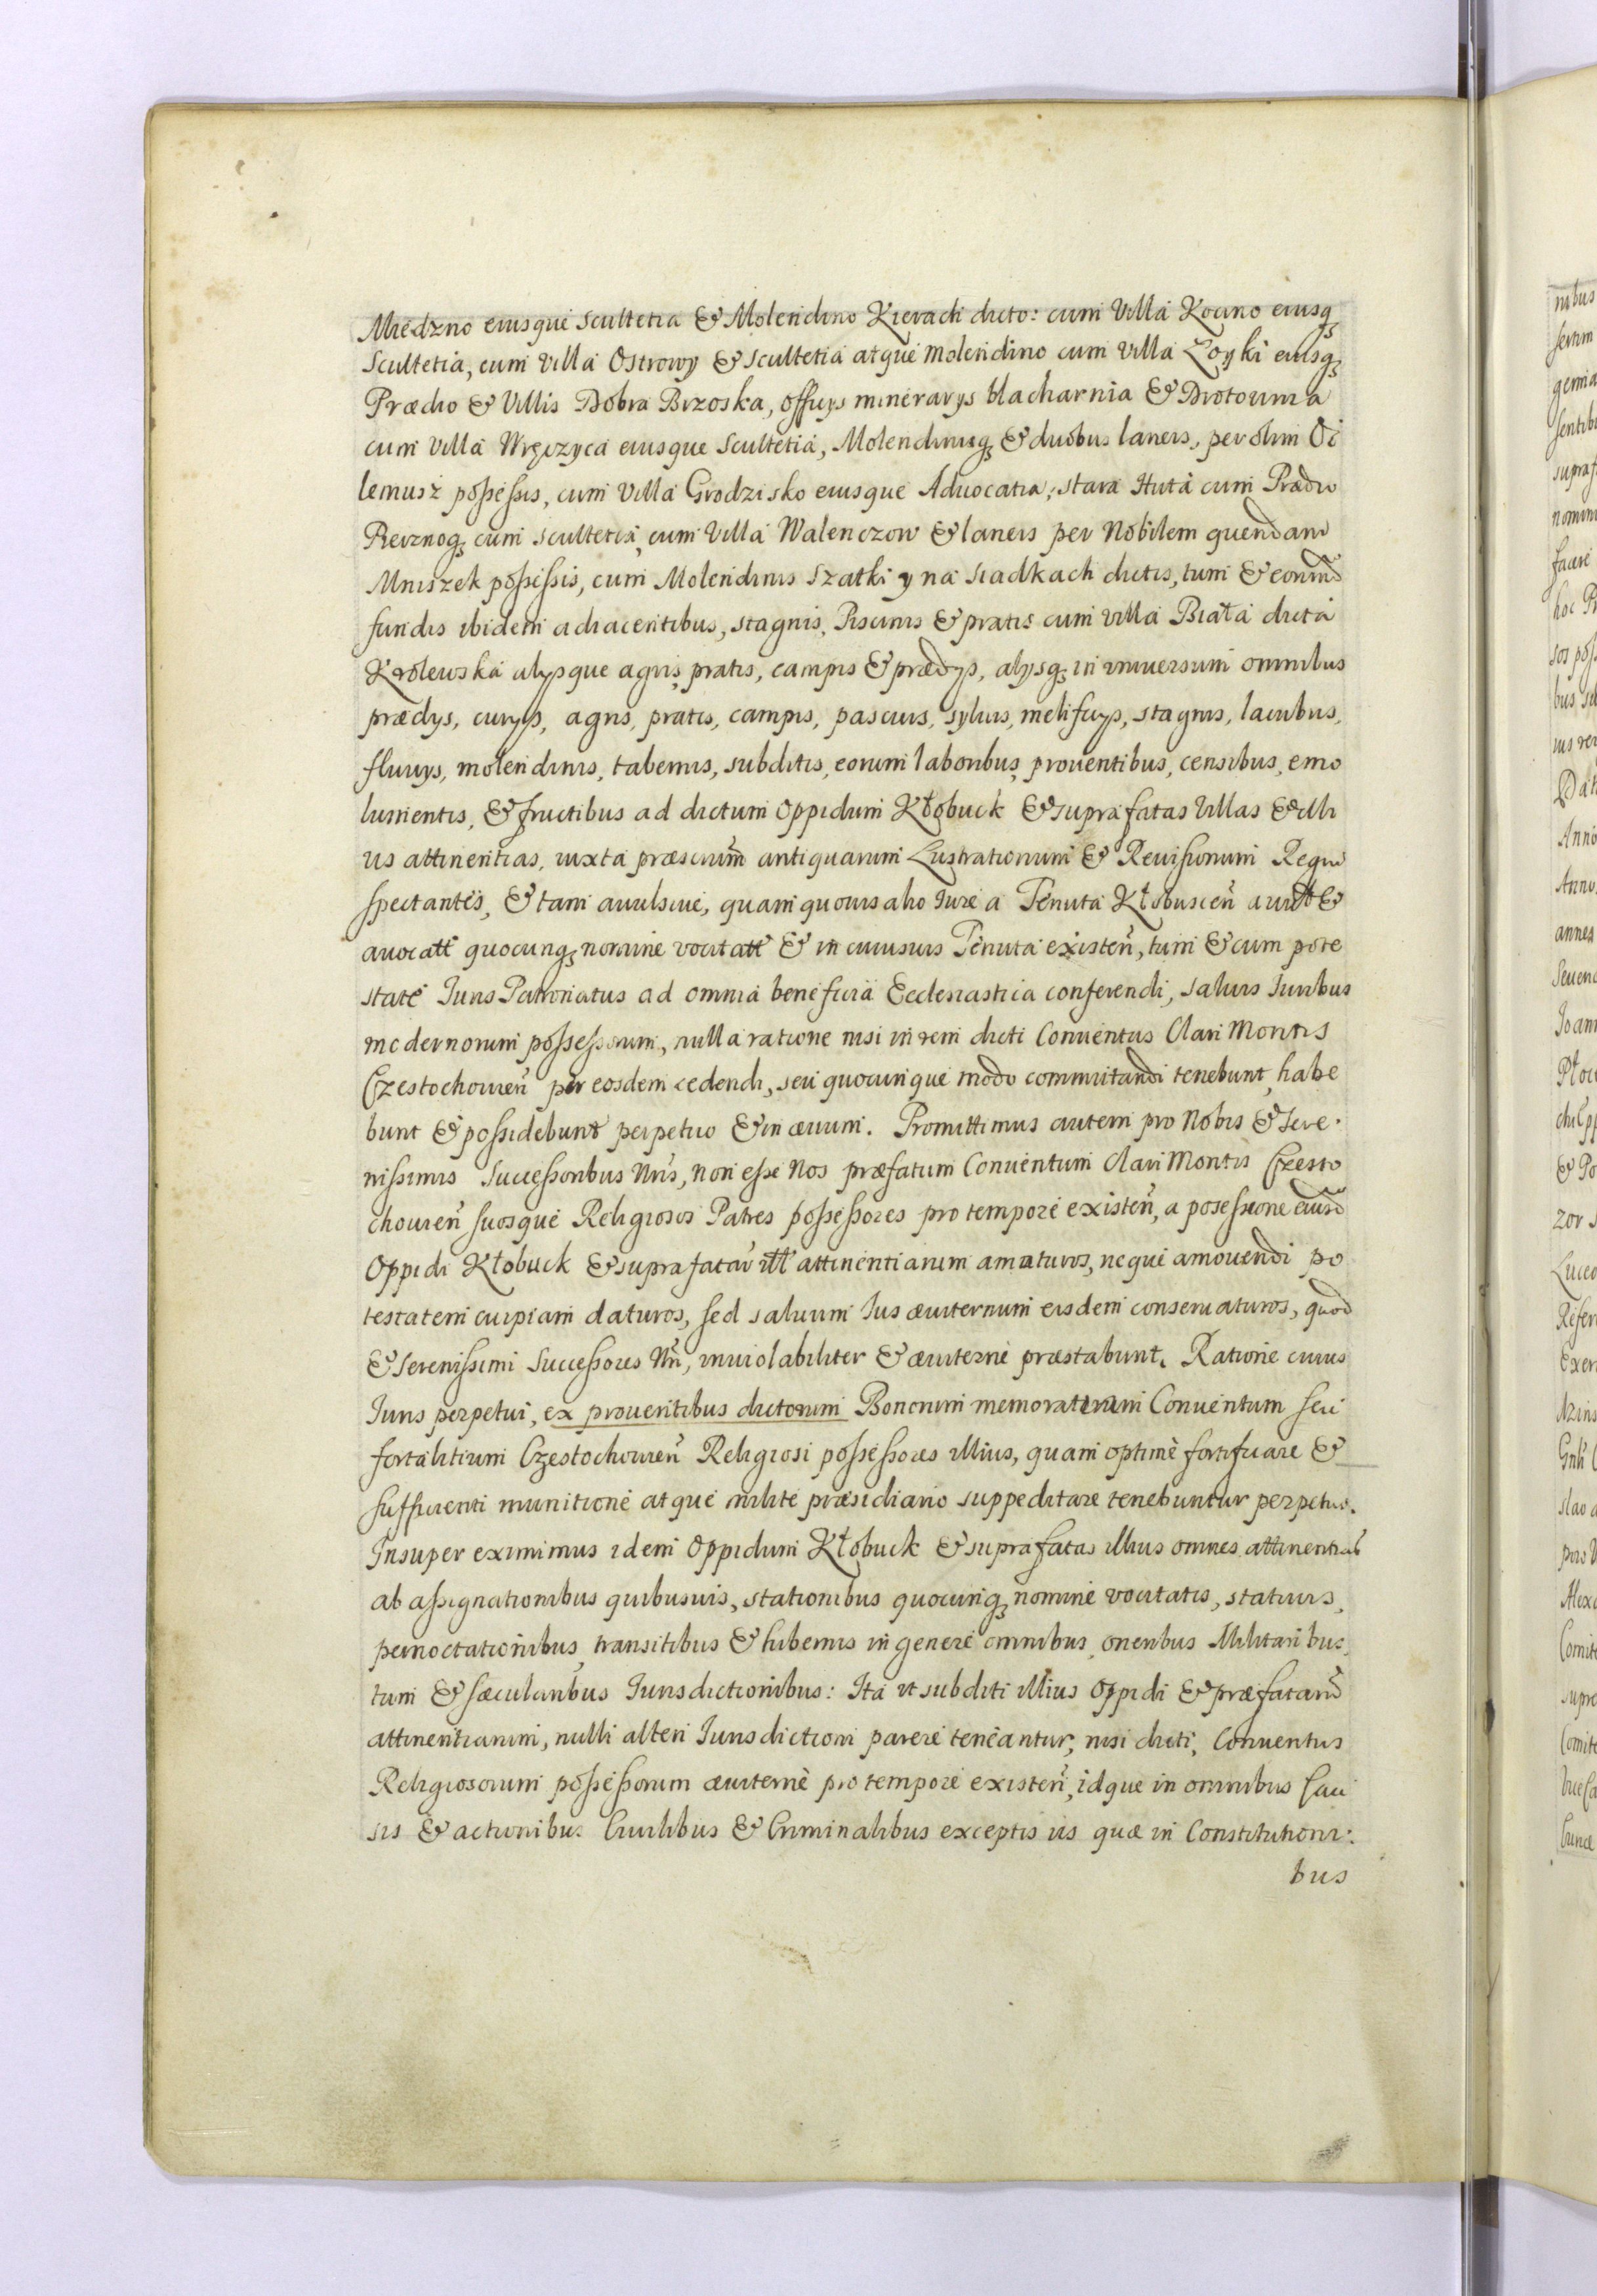 Miedzno eiusque Scultetia & Molendino Kierach dicto: cum Villa Kocino eiusq
Scultetia, cum Villa Ostrowy & Scultetia atque Molendino cum Villa Łoyki eiusq
Prædio & Villis Dobra Brzoska, officijs minerarijs blacharnia & Drotownia
cum Villa Wręczyca eiusque Scultetia, Molendinisq & duobus laneis, per olim Oi
lemusz possessis, cum Villa Grodzisko eiusque Aduocatia, stara Huta cum Prædio
cum scultetia, cum Villa Walenczow & laneis per Nobilem quendam
Mniszek possessis, cum Molendinis Szatki y na siadkach dictis, tum & eorund
fundis ibidem adiacentibus, stagnis, Piscinis & pratis cum villa Biała dicta
Krolewska alijsque agris, pratis, campis & prædijs, alijsq in vniuersum omnibus
prædijs, curijs, agris, pratis, campis, pascuis, syluis, melificijs, stagnis, lacubus,
fluuijs, molendinis, tabernis, subditis, eorum laboribus, prouentibus, censibus, emo
lumentis, & fructibus ad dictum Oppidum Kłobuck & suprafatas Villas & illi
us attinentias, iuxta præscrium antiquarum Lustrationum & Reuisionum Regni
spectantes, & tam auulsiue, quam quouis alio Iure a Tenuta Kłobuscen auult &
auocatt quocunq nomine vocitatt & in cuiusuis Tenuta existen, tum & cum pote
state Iuris Patronatus ad omnia beneficia Ecclesiastica conferendi, saluis Iuribus
modernorum possessorum, nulla ratione nisi in rem dicti Conuentus Clari Montis
Czestochouien per eosdem cedendi, seu quocunque modo commutandi tenebunt, habe
bunt & possidebunt perpetuo & in æuum. Promittimus autem pro Nobis & Sere.
nissimis Successoribus Nris, non esse Nos præfatum Conuentum Clari Montis Czesto
chouien suosque Religiosos Patres possessores pro tempore existen, a posessione eiusd
Oppidi Kłobuck & suprafatar ill attinentiarum amoturos, neque amouendi po
testatem cuipiam daturos, sed saluum Ius æuiternum eisdem conseruaturos, quod
& Serenissimi Successores Nri, inuiolabiliter & æuiterne præstabunt. Ratione cuius
Iuris perpetui, ex prouentibus dictorum Bonorum memoratorum Conuentum seu
fortalitium Czestochouien Religiosi possessores illius, quam optimè fortificare &
sufficienti munitione atque milite præsidiario suppeditare tenebuntur perpetuo.
Insuper eximimus idem Oppidum Kłobuck & suprafatas illius omnes attinentias
ab assignationibus quibusuis, stationibus quocunq nomine vocitatis, statiuis,
pernoctationibus, transitibus & hibernis in genere omnibus, oneribus Militaribus,
tum & sæcularibus Iurisdictionibus: Ita vt subditi illius Oppidi & præfatarū
attinentiarum, nulli alteri Iurisdictioni parere teneantur, nisi dicti, Conuentus
Religiosorum possessorum æuiternè pro tempore existen, idque in omnibus Cau
sis & actionibus Ciuilibus & Criminalibus exceptis iis quæ in Constitutioni:
bus